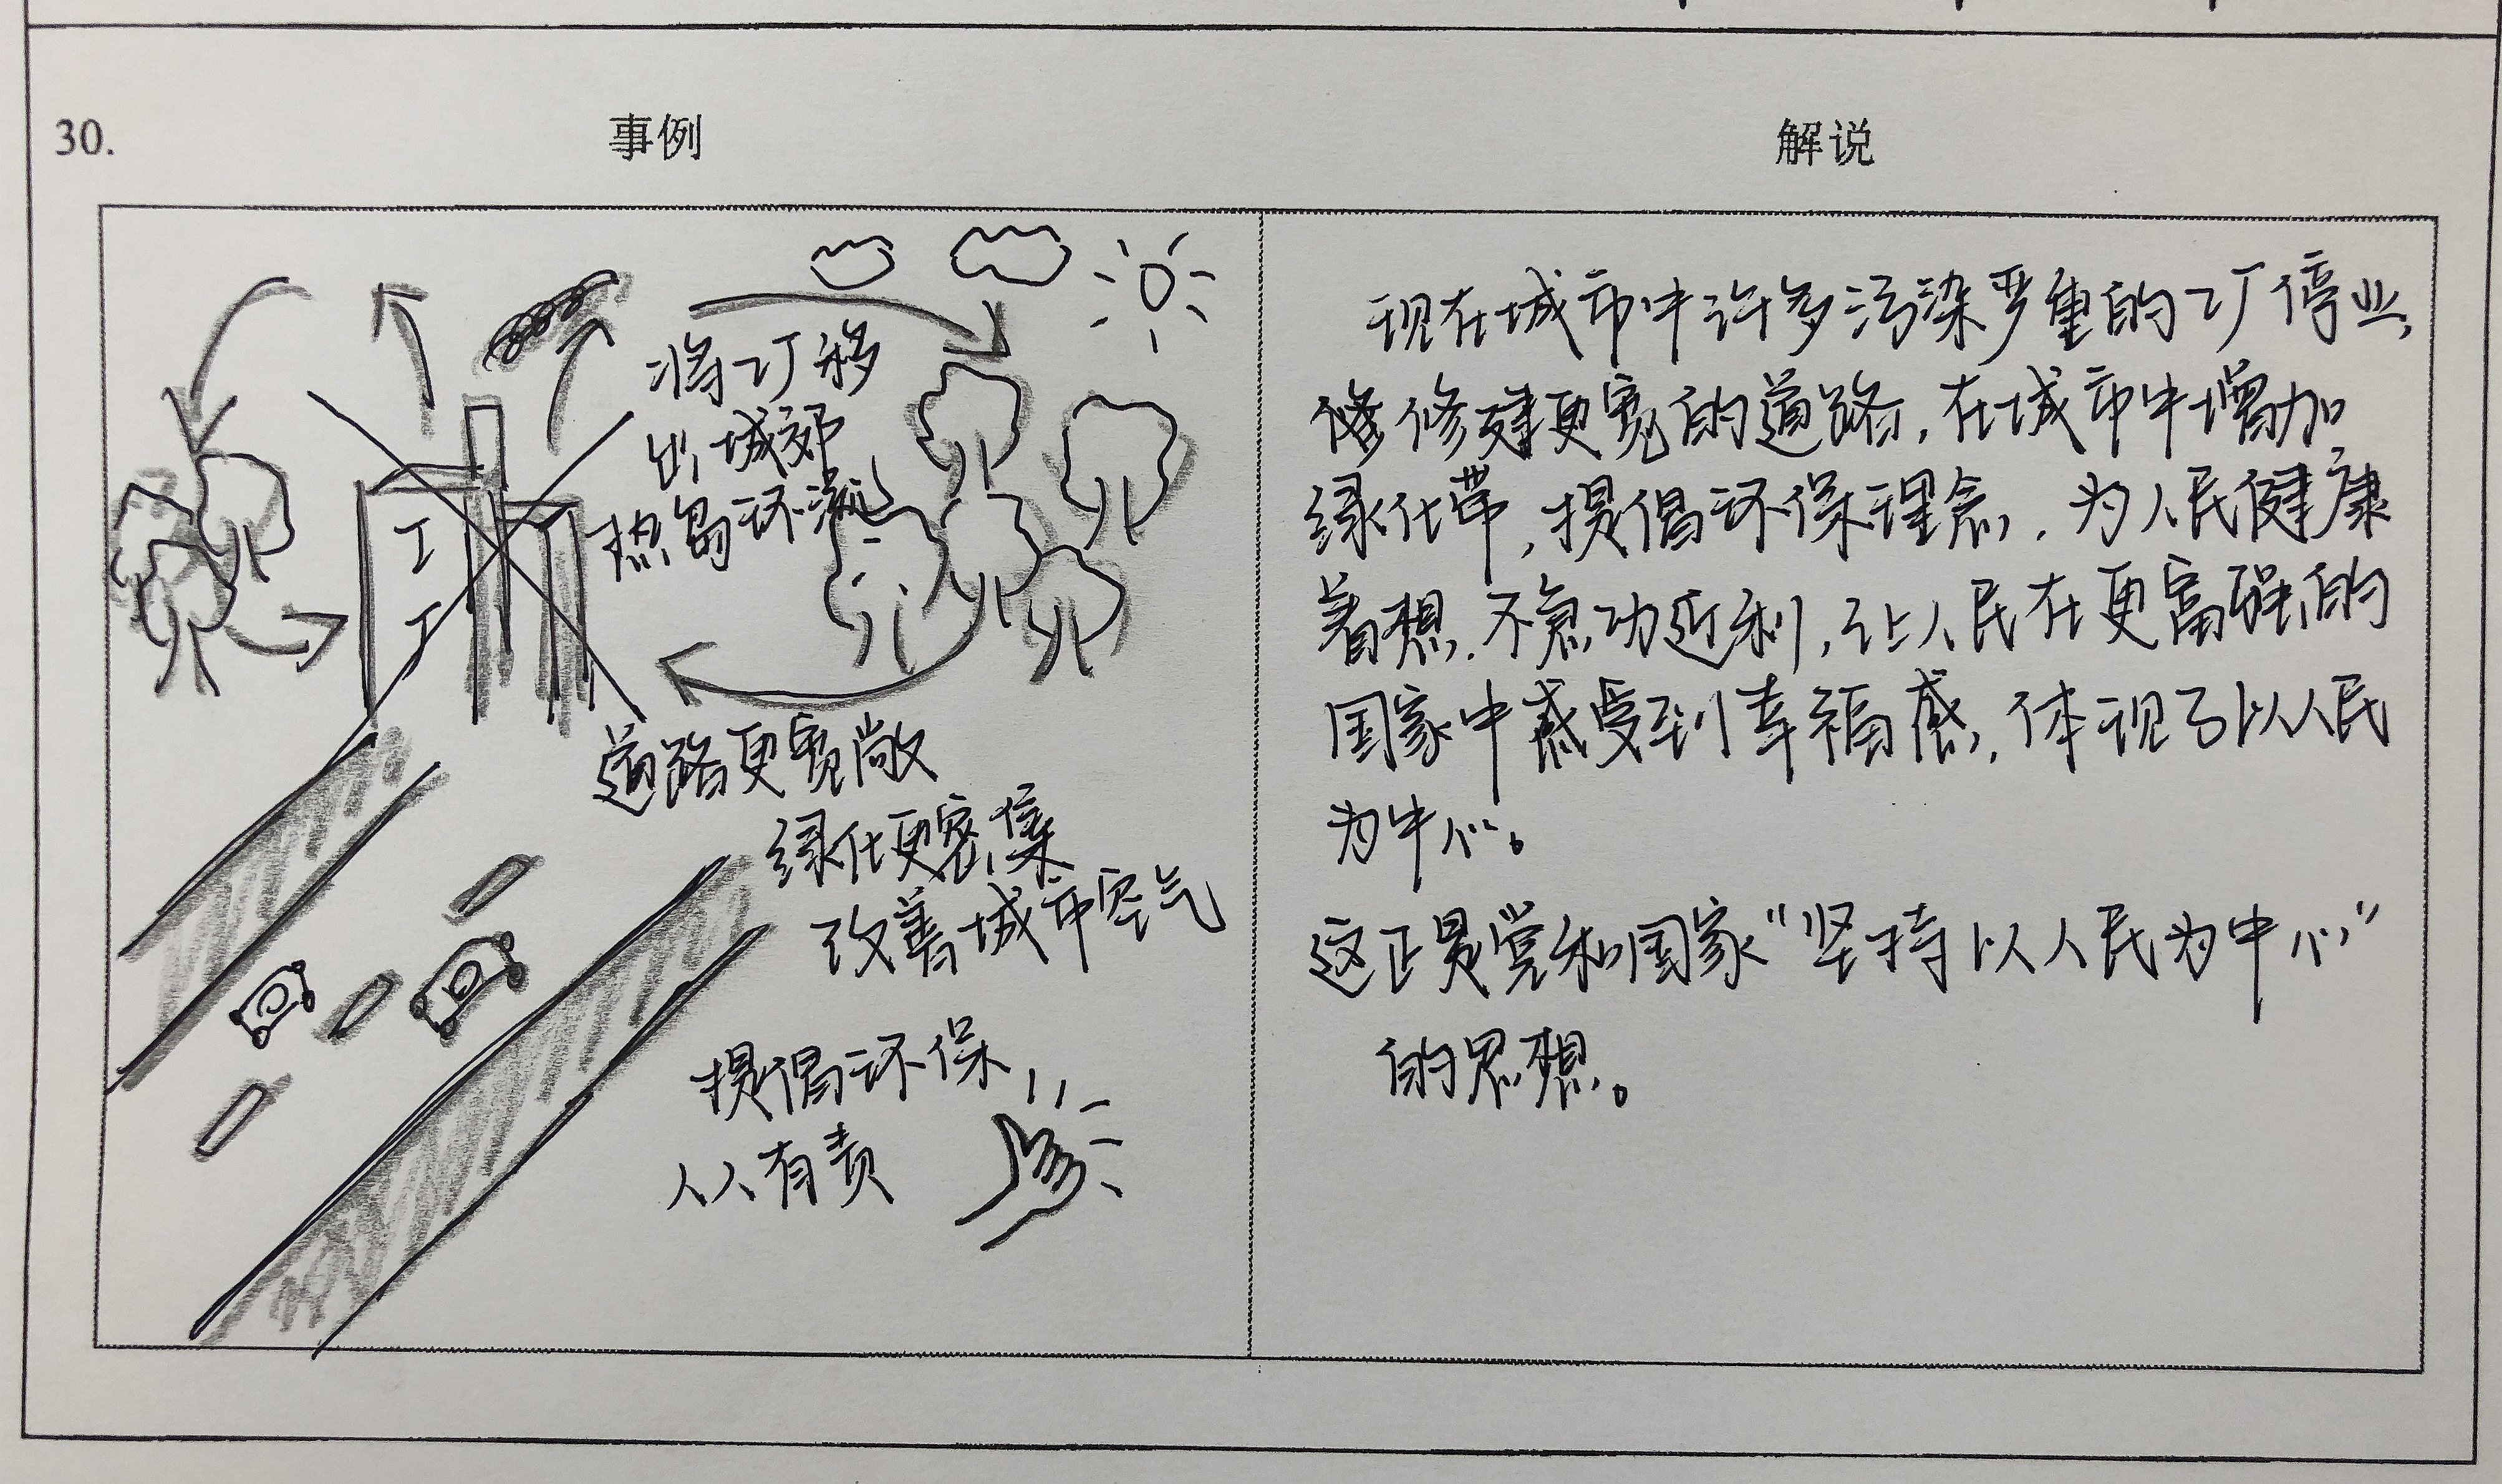 30.
事例
解说
将工厂移
出城郊
热岛环流
工
工
道路更宽敞
绿化更密集
改善城市空气
提倡环保
人人有责
现在城市中许多污染严重的工厂停业,
修建更宽的道路,在城市中增加
绿化带,提倡环保理念,为人民健康
着想,不急功近利,让人民在更富强的
国家中感受到幸福感,体现了以人民
为中心。
这正是党和国家“坚持以人民为中心”
的思想。